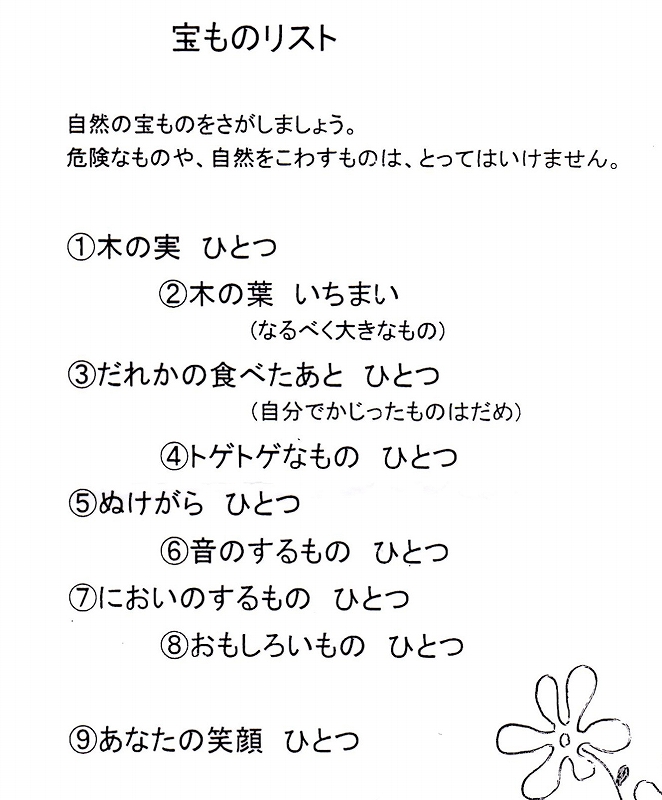 宝ものリスト
自然の宝ものをさがしましょう。
危険なものや、自然をこわすものは、とってはいけません。
①木の実　ひとつ
②木の葉　いちまい
（なるべく大きなもの）
③だれかの食べたあと　ひとつ
（自分でかじったものはだめ）
④トゲトゲなもの　ひとつ
⑤ぬけがら　ひとつ
⑥音のするもの　ひとつ
⑦においのするもの　ひとつ
⑧おもしろいもの　ひとつ
⑨あなたの笑顔　ひとつ